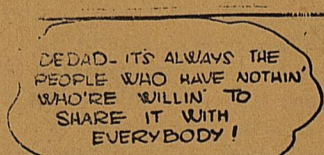 DEDAD- IT'S ALWAYS THE
PEOPLE WHO HAVE NOTHIN'
WHO'RE WILLIN' TO
SHARE IT WITH
EVERYBODY!